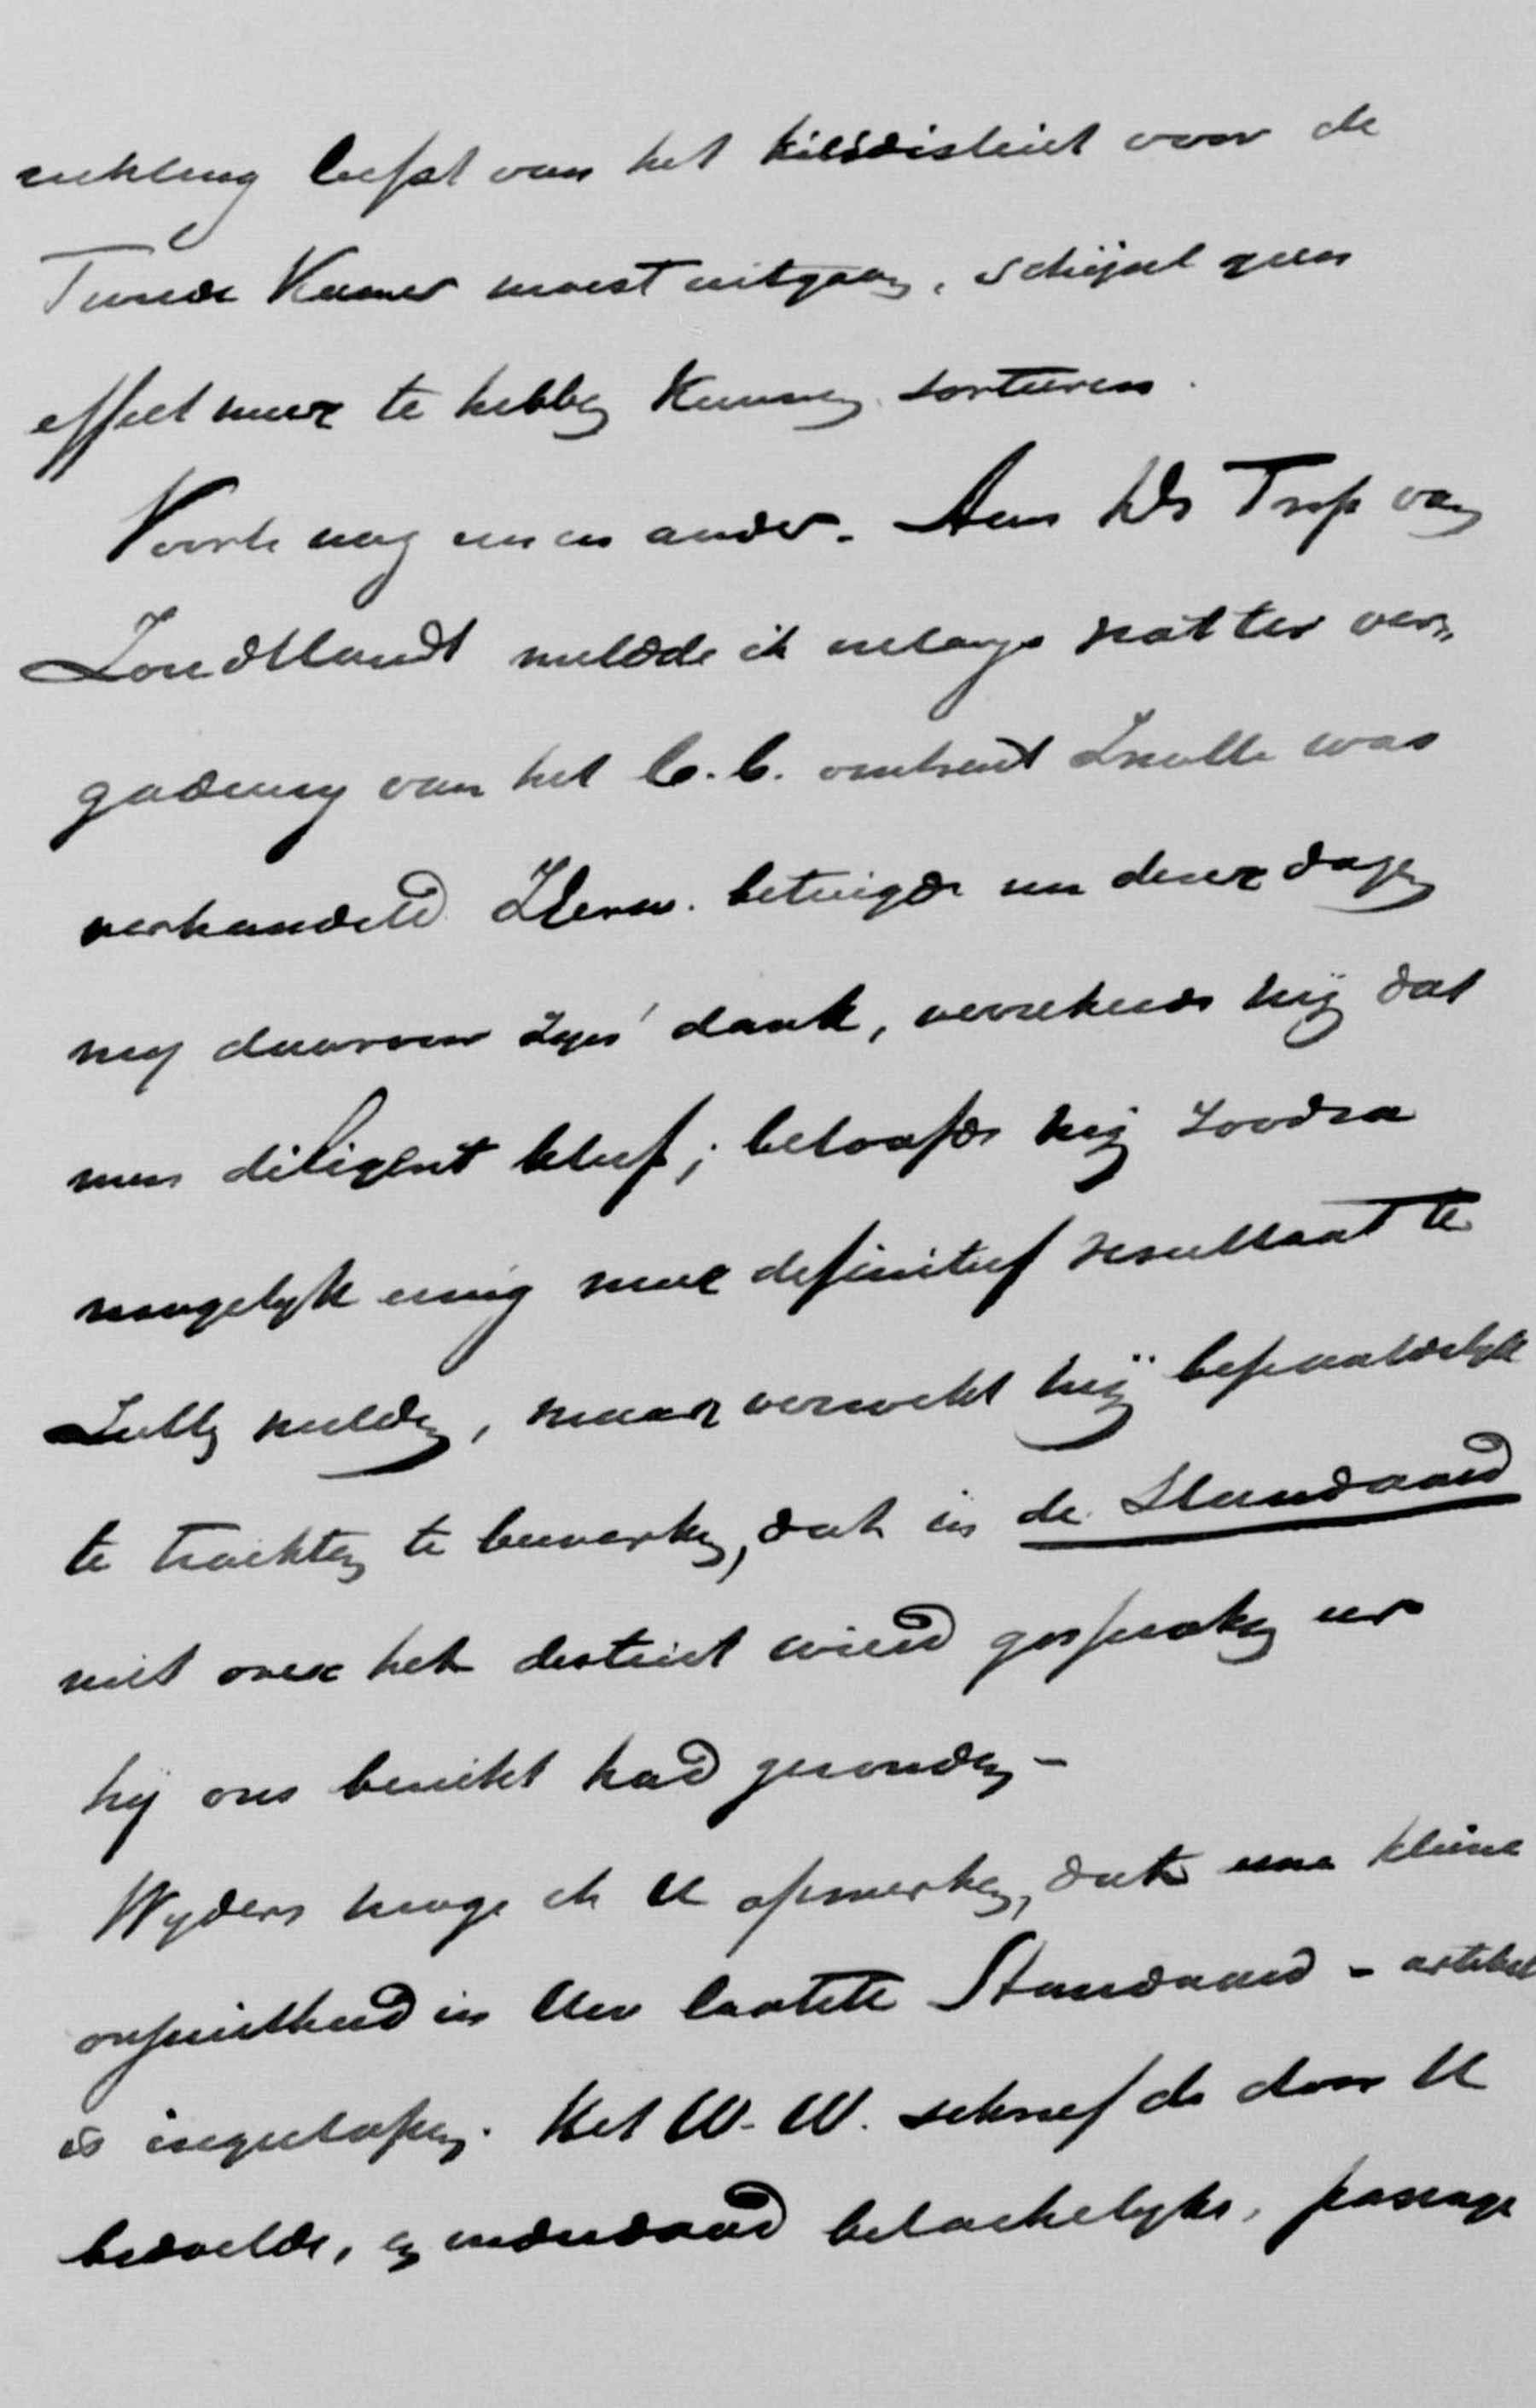 richting liefst van het kiesdistrict voor de
Tweede Kamer moest uitgaan, schijnt geen
effect meer te hebben kunnen sorteeren.
Voorts nog een en ander. Aan Ds Trop van
melde ik onlangs wat ter ver-
gadering van het C.C. omtrent Zwolle was
verhandeld. ZEerw. betuigde nu dezer dagen
mij daarvoor zijn dank, verzekerde hij dat
men diligent bleef; beloofde hij zoodra
mogelijk eenig meer definitief resultaat te
zullen melden, maar verzocht hij bepaaldelijk
te trachten te bewerken, dat in de Standaard
niet over het district wierd gesproken eer
hij ons bericht had gezonden –
Wijders moge ik U opmerken, dat eene kleine
onjuistheid in Uw laatste Standaard - artikel
is ingeslopen. Het W.-W. schreef de door U
bedoelde, en inderdaad belachelijke, passage